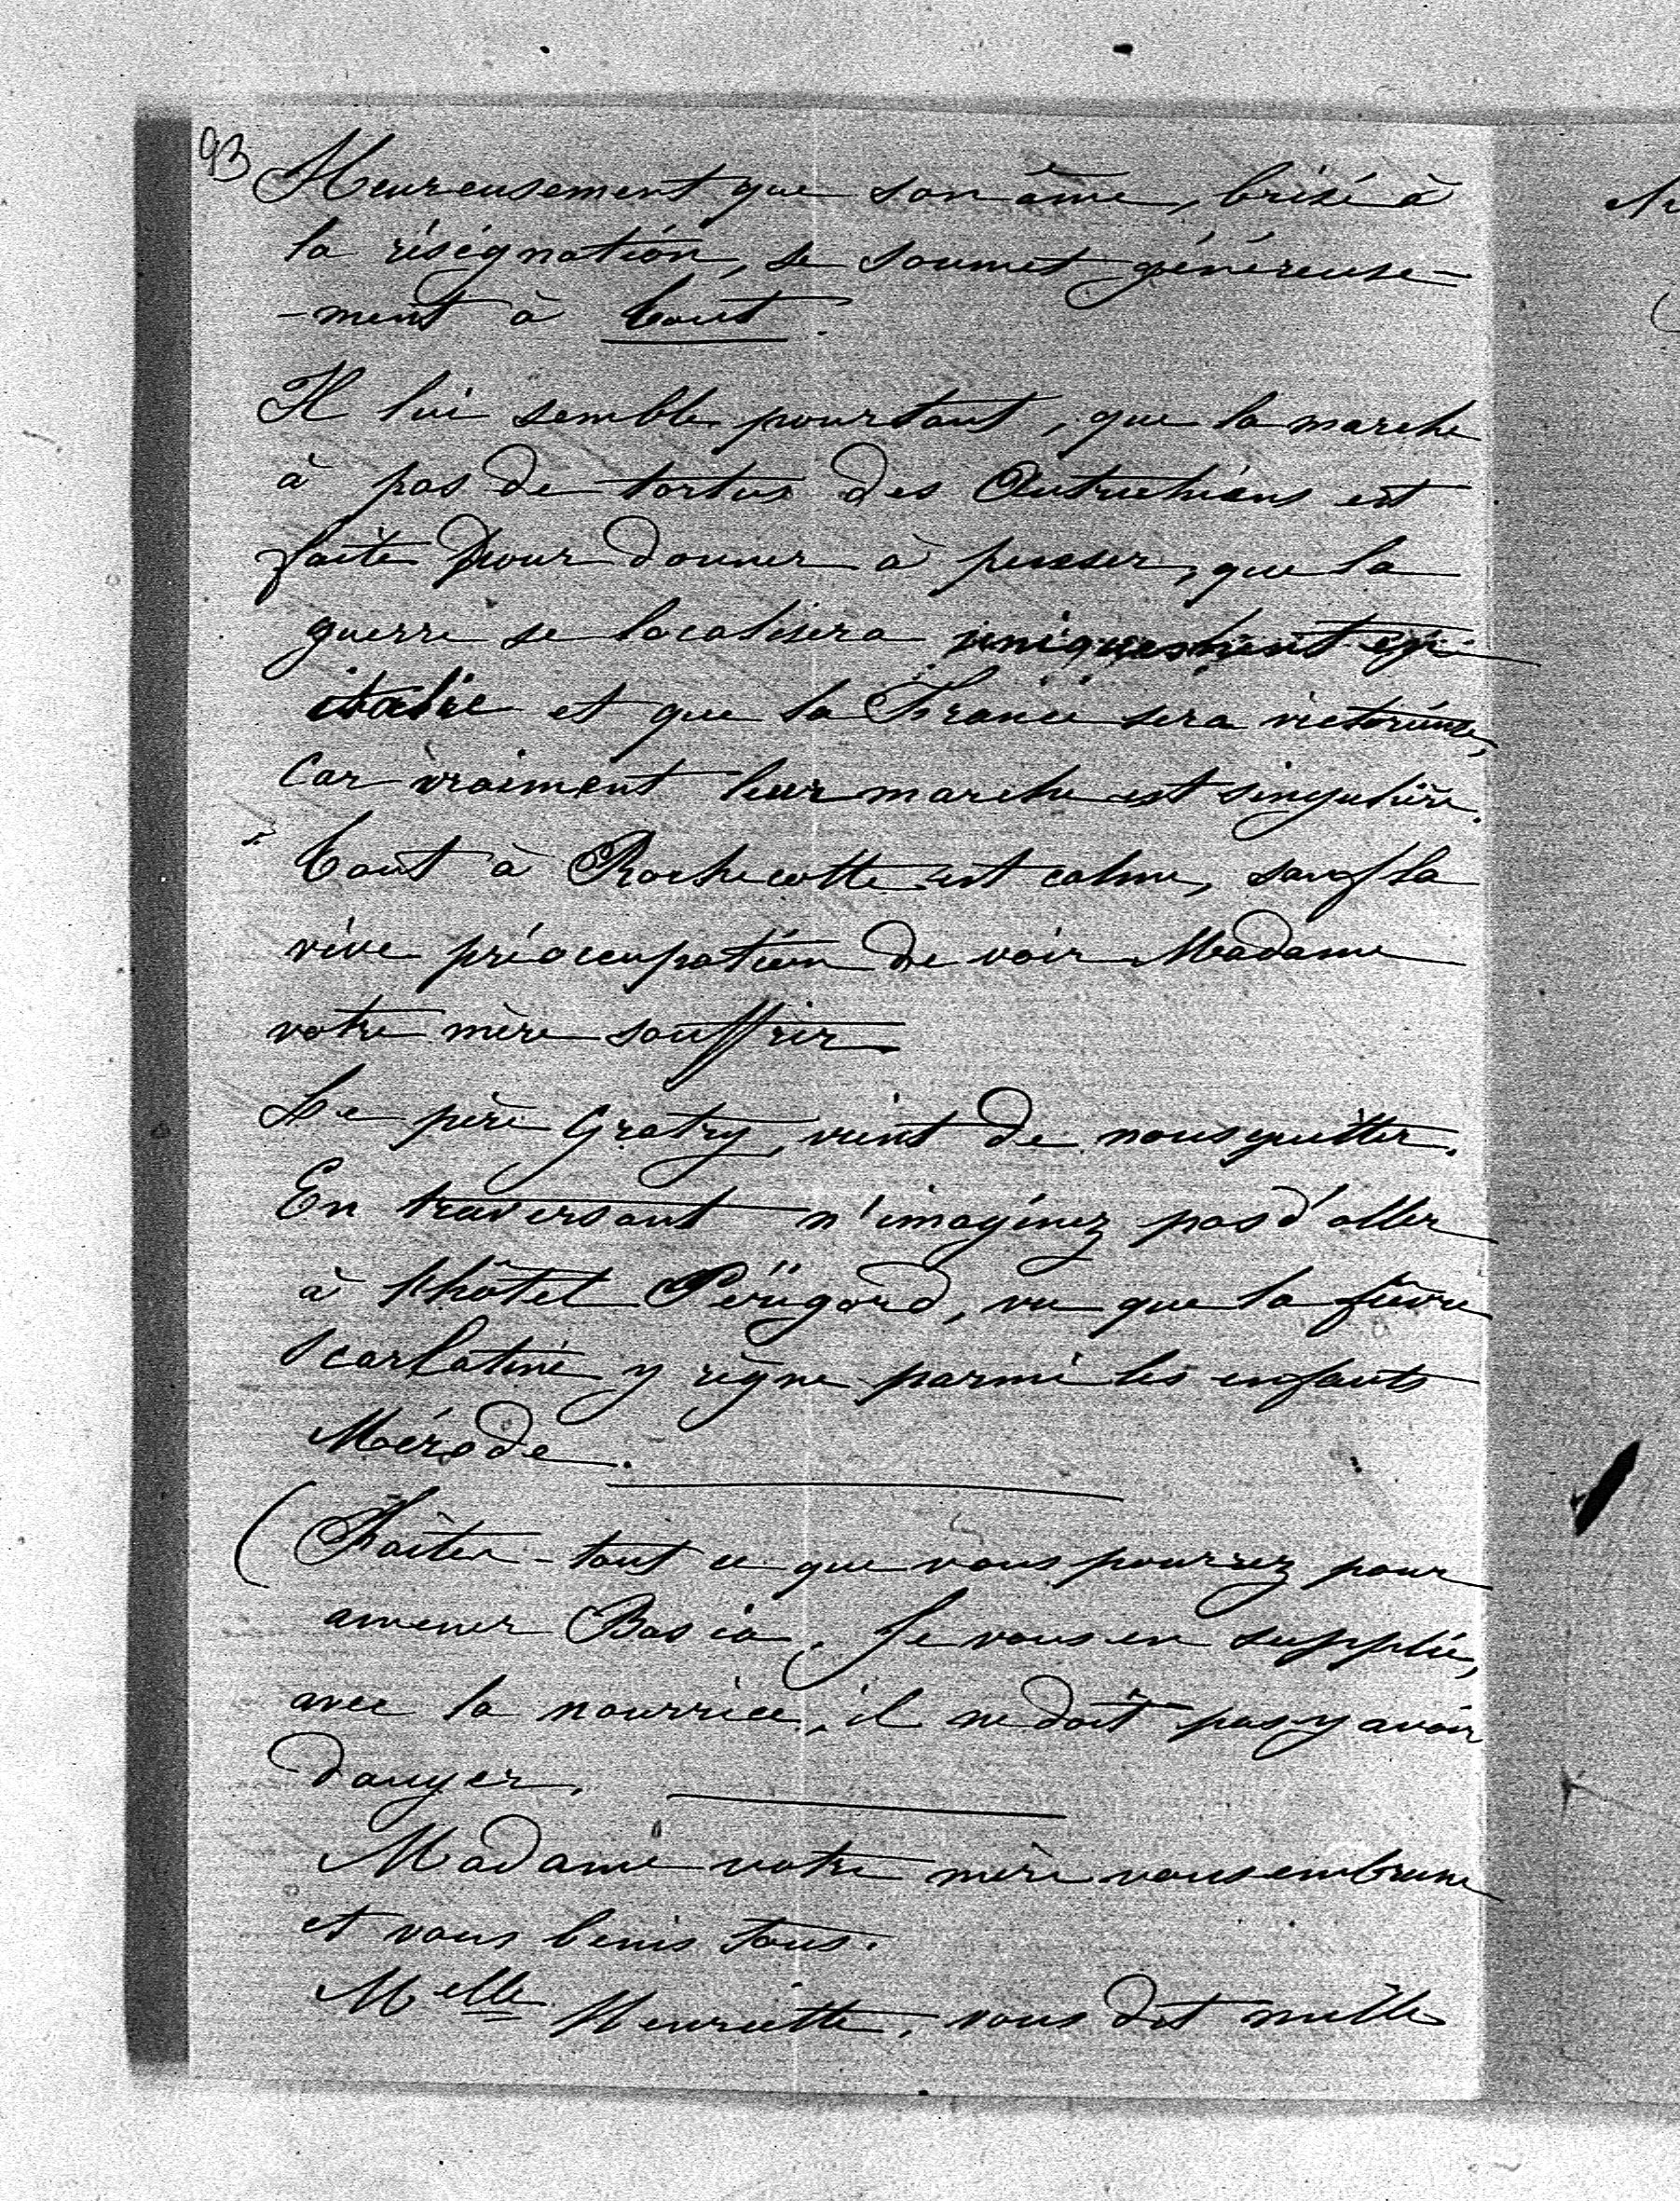 93
Heureusement que son âme, brisé à
la résignation, se soumet généreuse-
-ment à tout.
Il lui semble pourtant, que la marche
à pas de tortue des Autrichiens est
faite pour donner à penser, que la
guerre se localisera uniquement en
italie et que la France sera victorieuse,
car vraiment leur marche est singulière.
Tout à Rochecotte est calme, sauf la
vive préoccupation de voir Madame
votre mère souffrir
Le père Gratry, vient de nous quitter.
En traversant n'imaginez pas d'aller
à l'hôtel Périgord, vu que la fièvre
scarlatine y règne parmi les enfants
Mérode.
(Faites-tout ce que vous pourrez pour
amener Basia. Je vous en supplie,
avec la nourrice, il ne doit pas y avoir
danger.
Madame votre mère vous embrasse
et vous benis tous.
Melle Henriette, vous dit mille